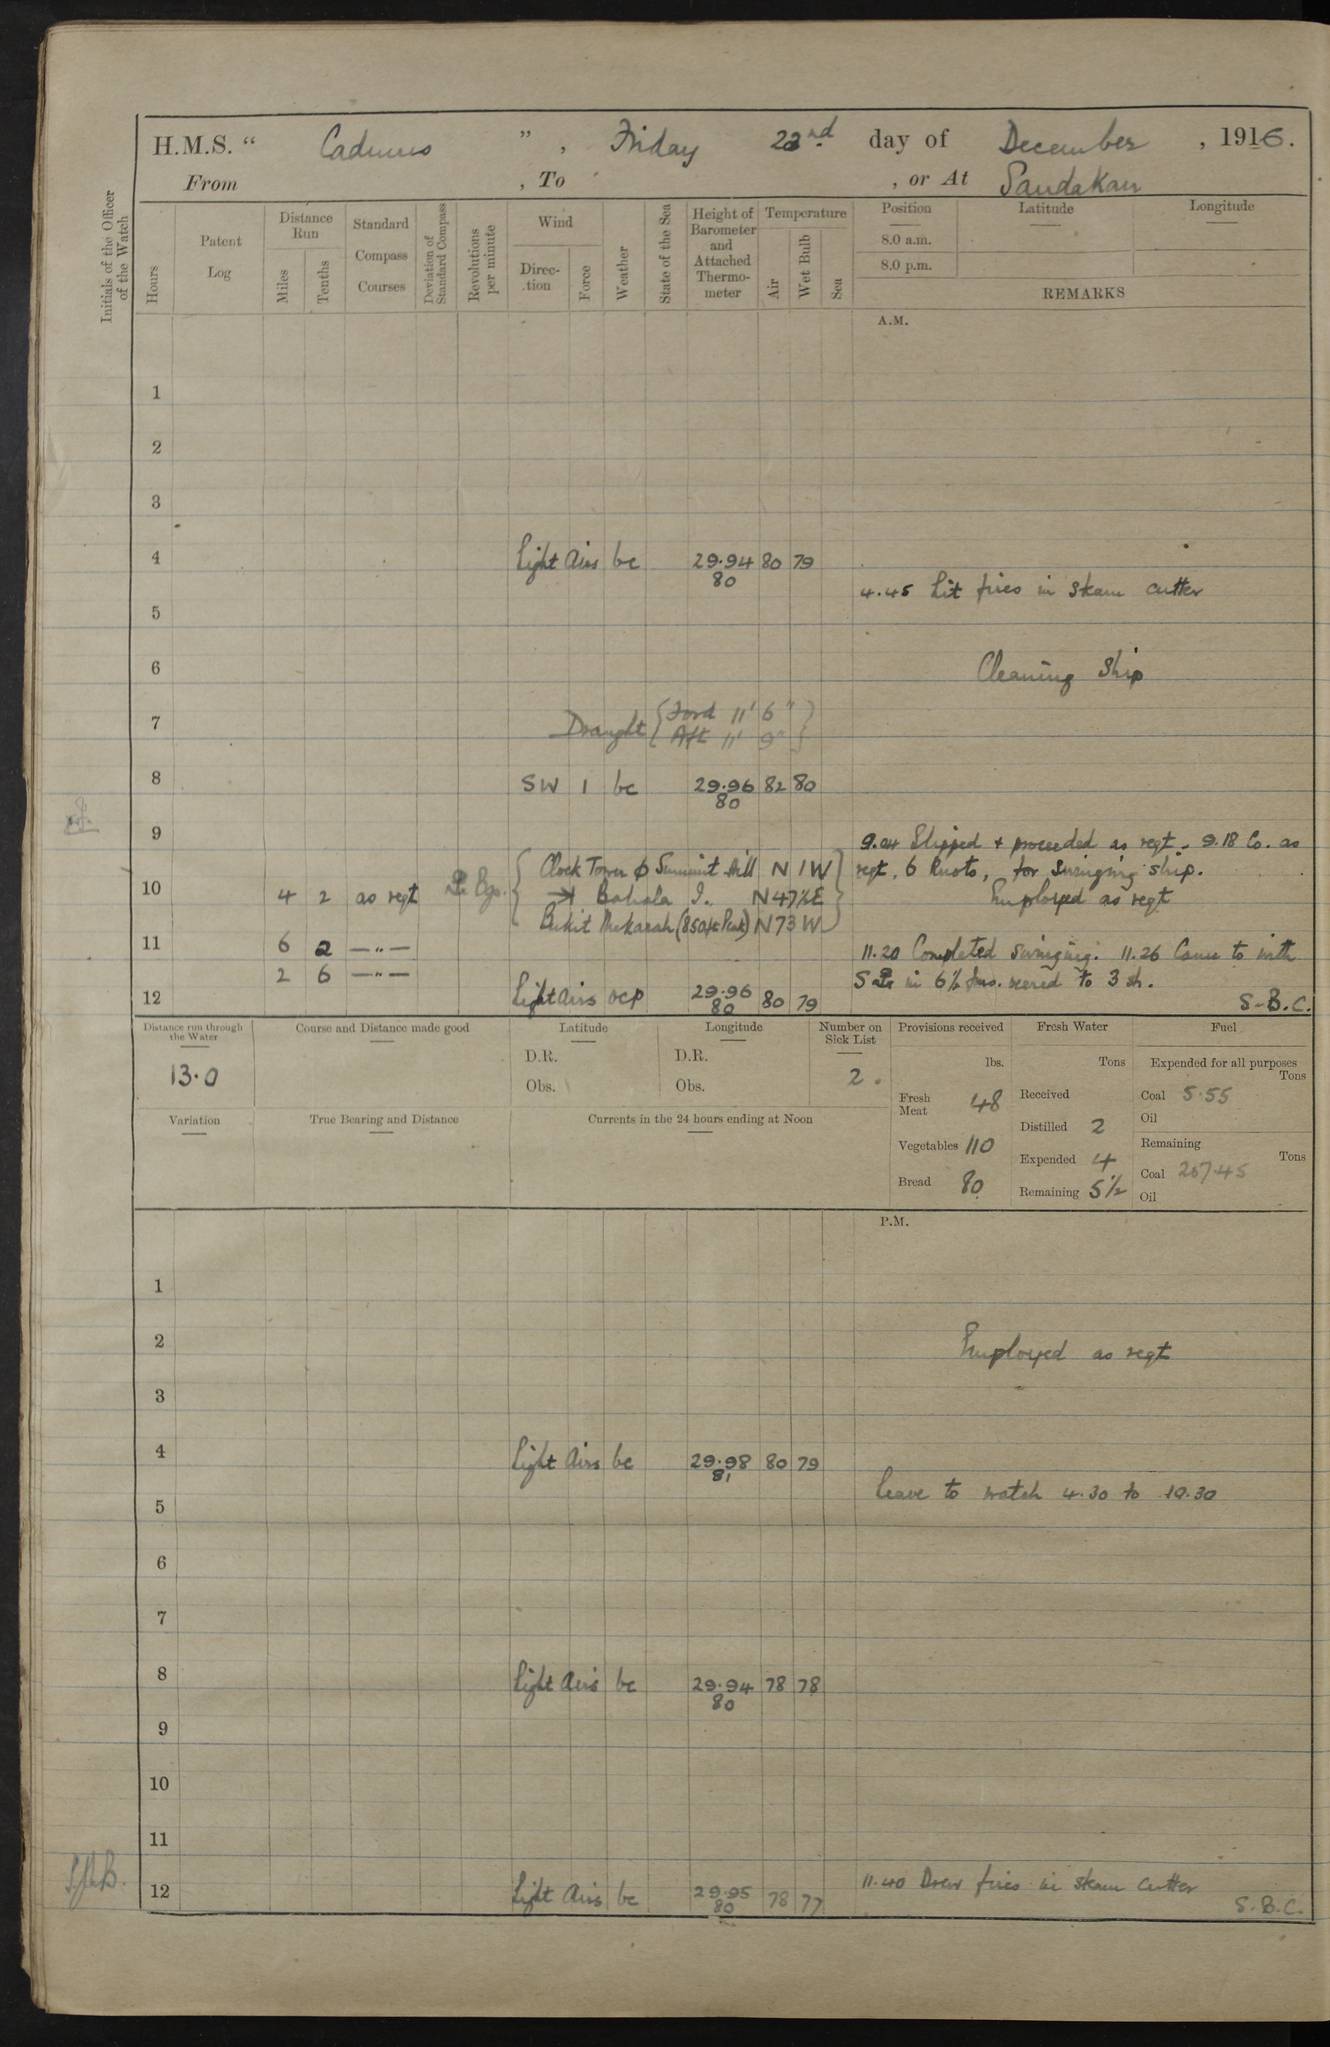 H.M.S. “ Cadmus ”, Friday 22nd day of December, 1916.
From , To , or At Sandakan
Initials of the Officer of the Watch
Hours
Patent Log
Distance Run
Miles
Tenths
Standard Compass Courses
Deviation of Standard Compass
Revolutions per minute
Wind
Direction
Force
Weather
State of the Sea
Height of Barometer and Attached Thermometer
Temperature
Air
Wet Bulb
Sea
Position
8.0 a.m.
8.0 p.m.
Latitude
Longitude
REMARKS
A.M.
1
2
3
4 Light Airs bc 29.94 80 79
80
4.45 Lit fires in steam cutter
5
6 Cleaning Ship
7 Draught { Ford 11' 6" }
{ Aft 11' 9" }
8 SW 1 bc 29.96 82 80
80
9
9.04 Slipped + proceeded as reqt. 9.18 Co. as
Clock Tower ϕ Summit Hill N 1 W
reqt, 6 Knots, for Swinging ship.
10 4 2 as reqt Bahala I. N 47½ E
Employed as reqt
(850ft Peak) N 73 W
11 6 2 —"—
11.20 Completed swinging. 11.26 Came to with
2 6 —"—
in 6½ fms. veered to 3 sh.
12 Light airs ocp 29.96 80 79
80
S.B.C.
Distance run through the Water
13.0
Course and Distance made good
Latitude
D.R.
Obs.
Longitude
D.R.
Obs.
Number on Sick List
2.
Provisions received
lbs.
Fresh Meat 48
Vegetables 110
Bread 80
Fresh Water
Tons
Received
Distilled 2
Expended 4
Remaining 5½
Fuel
Expended for all purposes
Tons
Coal 5.55
Oil
Remaining
Tons
Coal 207.45
Oil
Variation
True Bearing and Distance
Currents in the 24 hours ending at Noon
P.M.
1
2 Employed as reqt
3
4 Light Airs bc 29.98 80 79
81
Leave to watch 4.30 to 10.30
5
6
7
8 Light Airs bc 29.94 78 78
80
9
10
11
11.40 Drew fires in steam cutter
12 Light Airs bc 29.95 78 77
80
S.B.C.